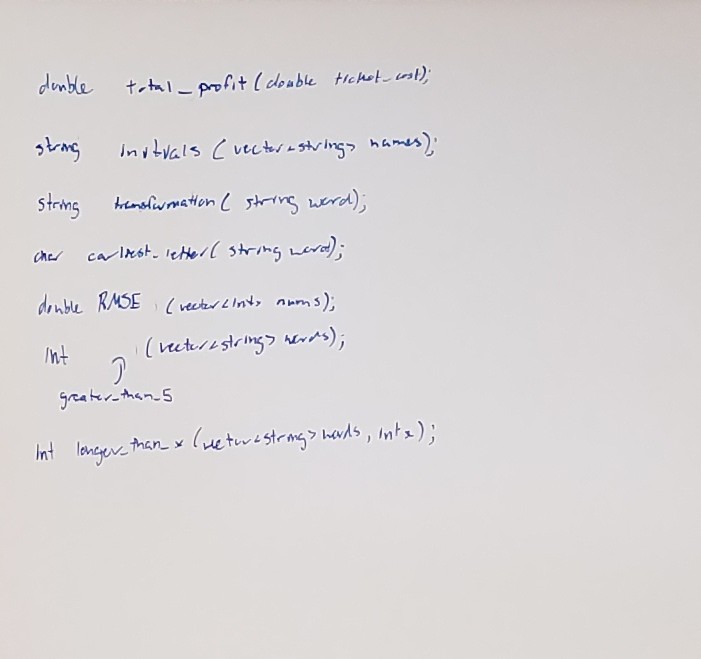 double total_profit (double ticket_cost);
string initials (vector<string> names);
string transformation ( string word);
char earliest_letter ( string word);
double RMSE (vector<int> nums);
int (vector<string> words);
greater_than_5
int longer_than_x (vector<string> words, int x);